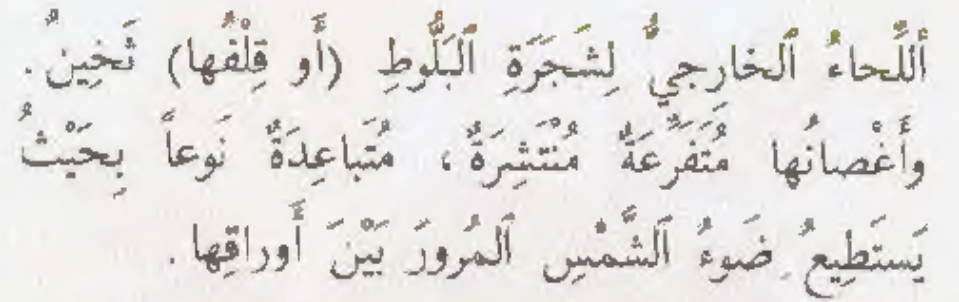 أَللِّحاءُ ٱلخارجيُّ لِشَجَرَةِ ٱلبَلُّوطِ (أَو قِلْفُها) ثَخِينٌ.
وأَغْصانُها مُتَفَرِّعَةٌ مُنْتَشِرَةٌ ، مُتَباعِدَةٌ نَوعاً بِحَيْثُ
يَستَطِيعُ ضَوءُ ٱلشَّمْسِ ٱلمُرورَ بَيْنَ أَوراقِها .